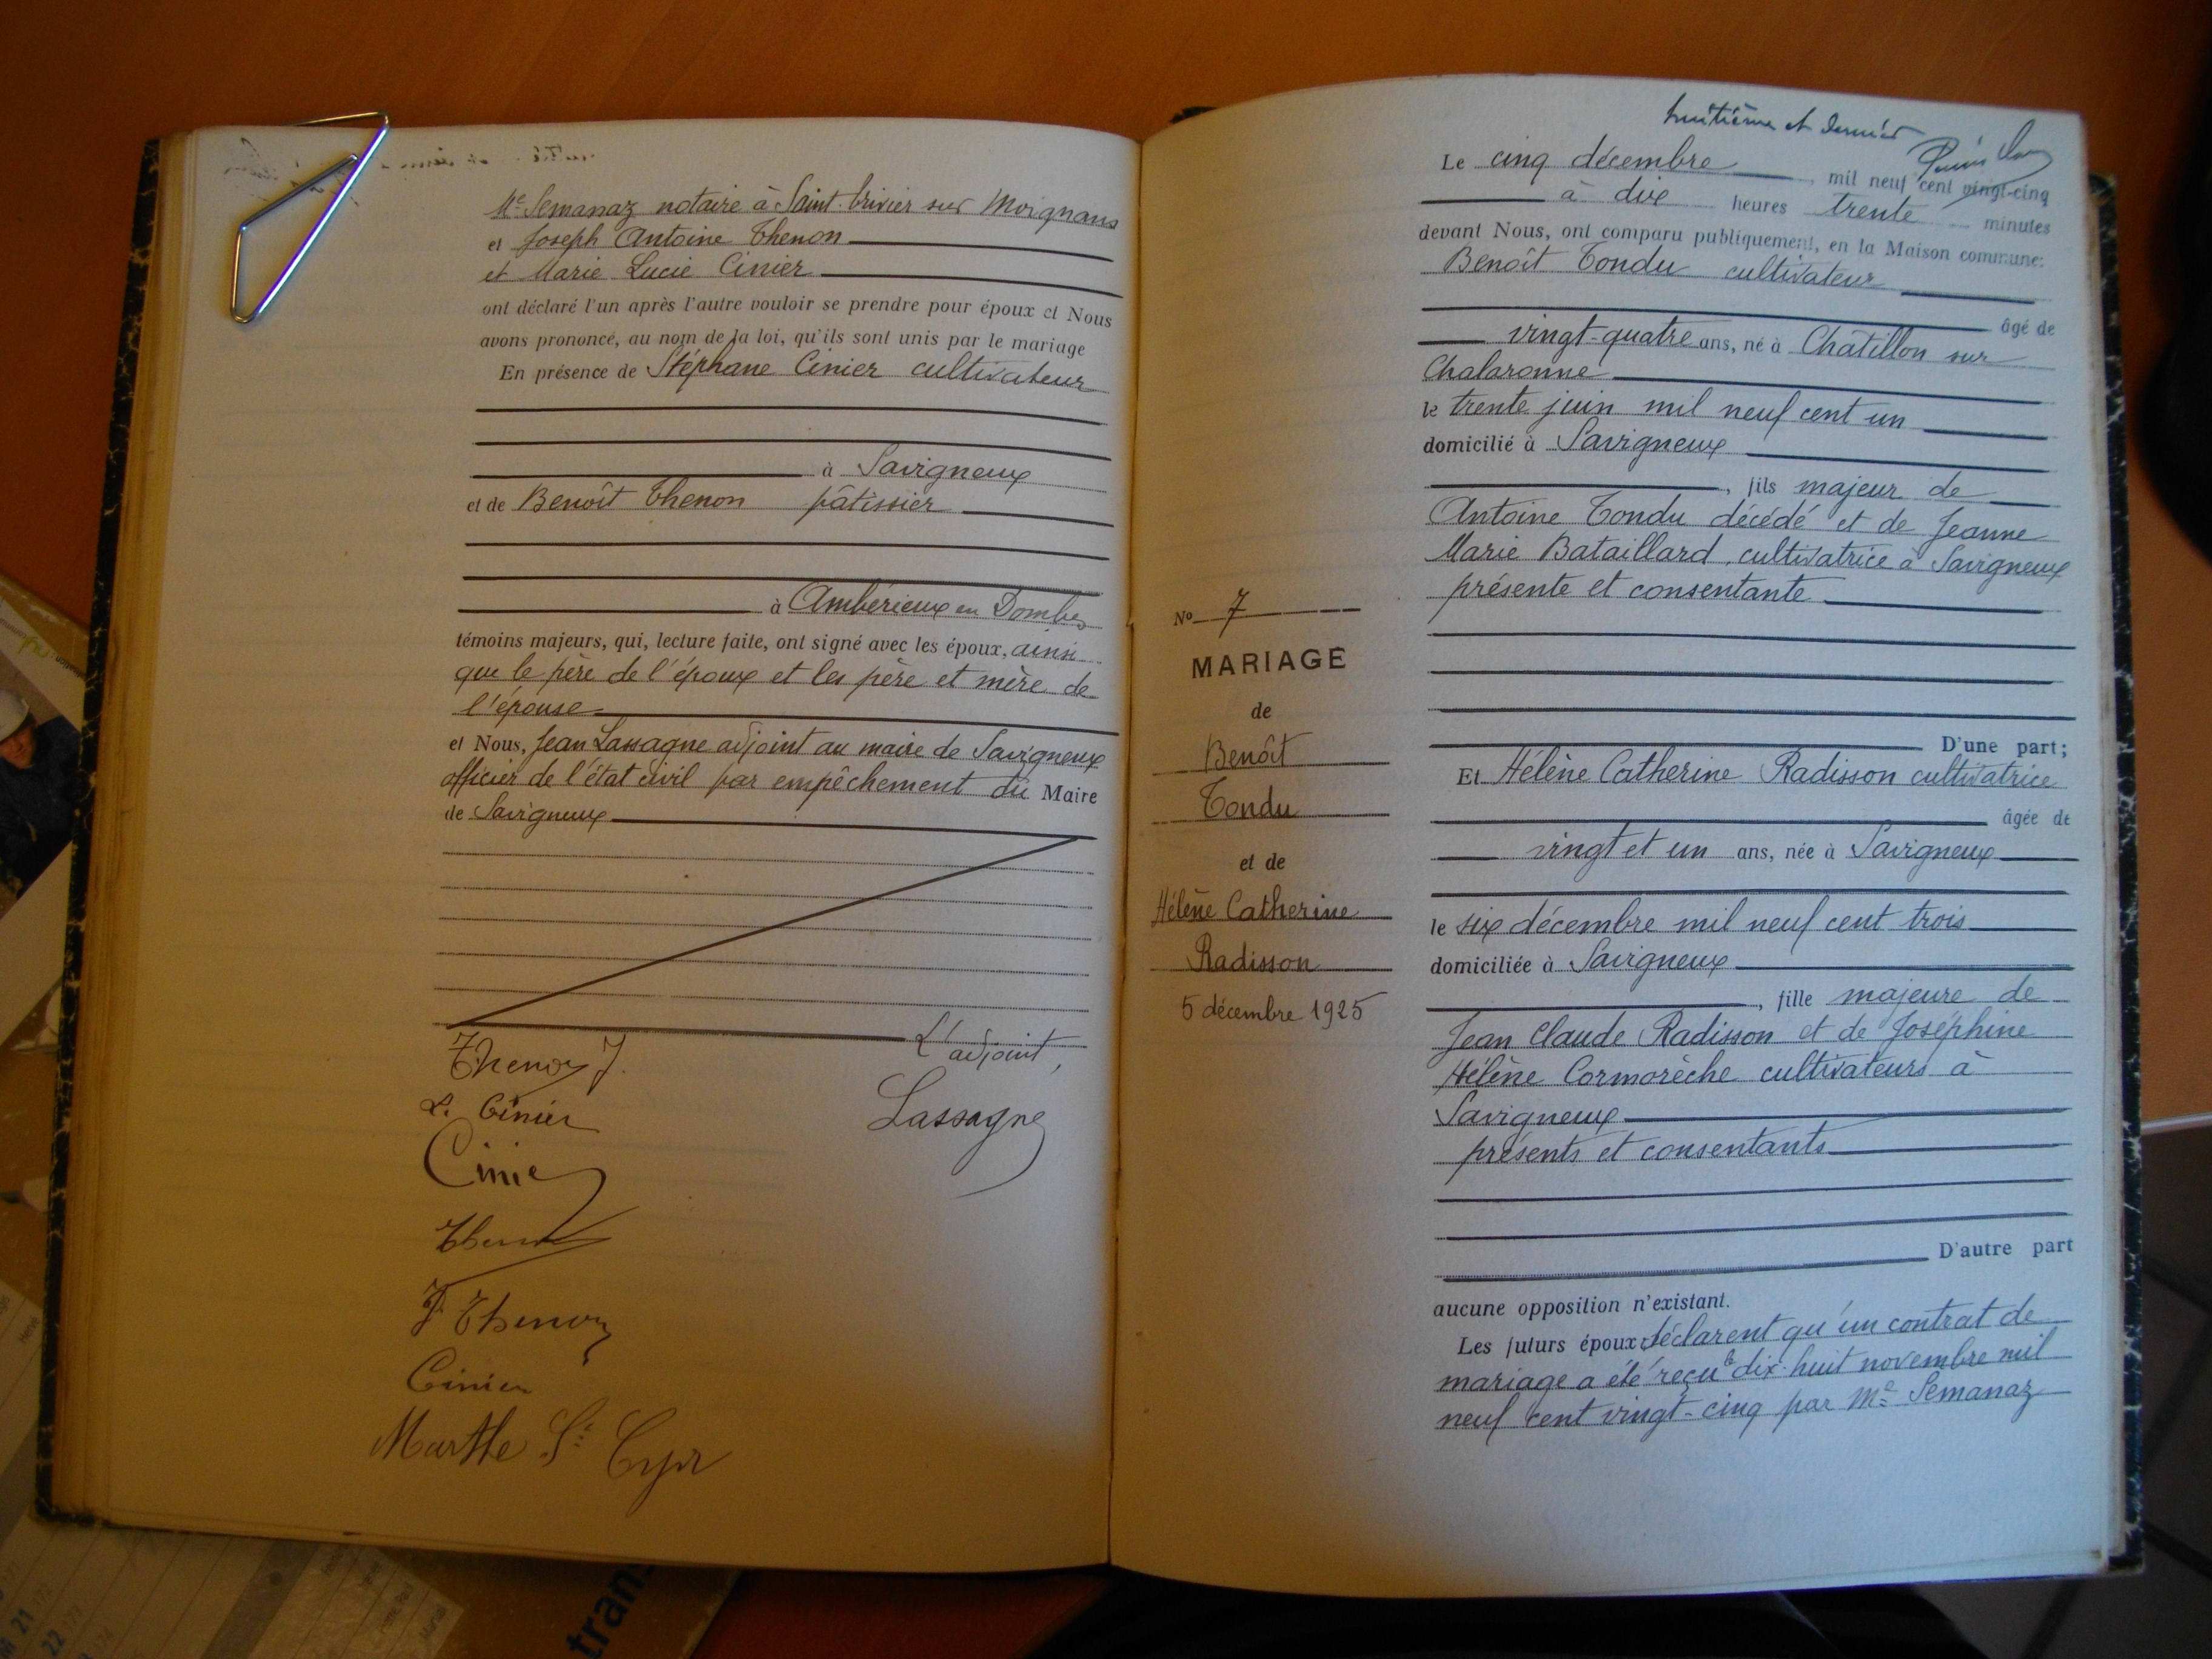 Me Semanaz notaire à Saint-Trivier sur Moignans
et Joseph Antoine Thenon
et Marie Lucie Cinier
ont déclaré l'un après l'autre vouloir se prendre pour époux et Nous
avons prononcé, au nom de la loi, qu'ils sont unis par le mariage
En présence de Stéphane Cinier cultivateur
à Savigneux
et de Benoît Thenon pâtissier
à Ambérieux en Dombes
témoins majeurs, qui, lecture faite, ont signé avec les époux, ainsi
que le père de l'époux et les père et mère de
l'épouse
et Nous, Jean Lassagne adjoint au maire de Savigneux
officier de l'état civil par empêchement du Maire
de Savigneux
L'adjoint,
Thenon J.
L. Cinier
Lassagne
Cinier
Thenon
J Thenon
Cinier
Marthe St Cyr
N° 7
MARIAGE
de
Benoît
Tondu
et de
Hélène Catherine
Radisson
5 décembre 1925
huitième et dernier
Le cinq décembre mil neuf cent vingt-cinq
à dix heures trente minutes
devant Nous, ont comparu publiquement, en la Maison commune:
Benoît Tondu cultivateur
âgé de
vingt-quatre ans, né à Chatillon sur
Chalaronne
le trente juin mil neuf cent un
domicilié à Savigneux
, fils majeur de
Antoine Tondu décédé et de Jeanne
Marie Bataillard, cultivatrice à Savigneux
présente et consentante
D'une part;
Et Hélène Catherine Radisson cultivatrice
âgée de
vingt et un ans, née à Savigneux
le six décembre mil neuf cent trois
domiciliée à Savigneux
, fille majeure de
Jean Claude Radisson et de Joséphine
Hélène Cormorèche cultivateurs à
Savigneux
présents et consentants
D'autre part
aucune opposition n'existant.
Les futurs époux déclarent qu'un contrat de
mariage a été reçu le dix-huit novembre mil
neuf cent vingt-cinq par Me Semanaz
trans
21
22